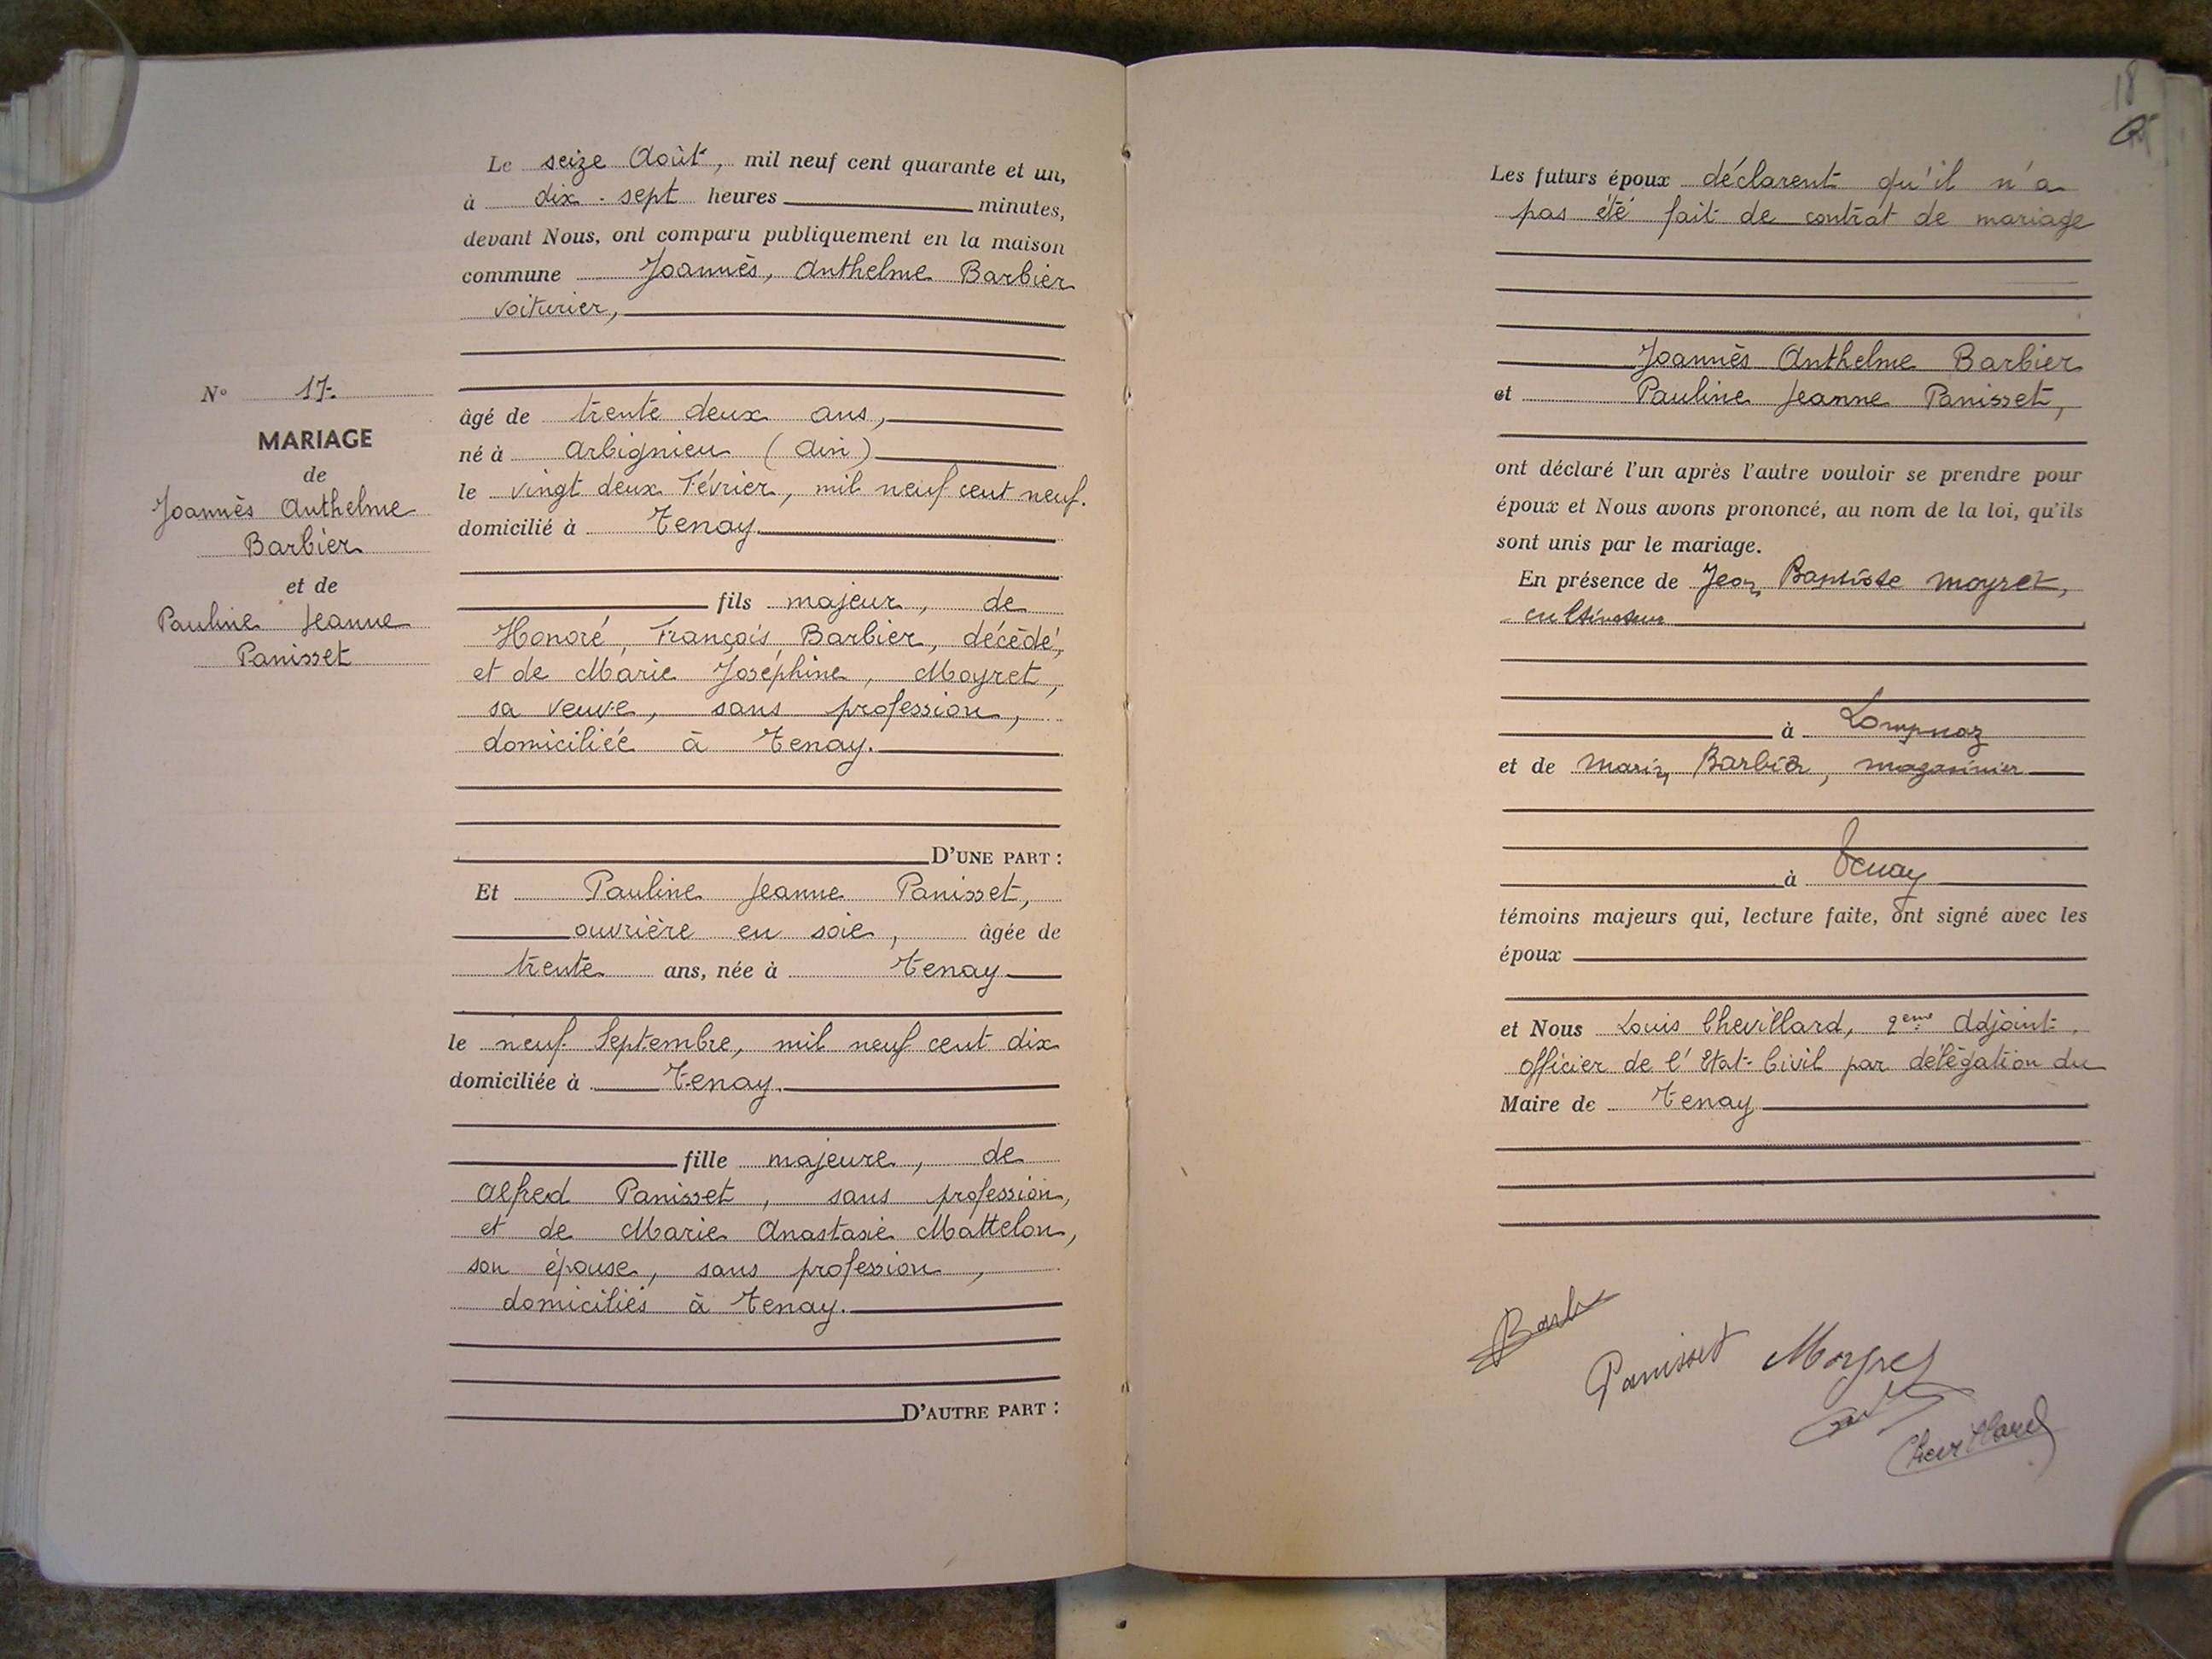 Le seize Août, mil neuf cent quarante et un,
à dix-sept heures minutes,
devant Nous, ont comparu publiquement en la maison
commune Joannès, Anthelme Barbier
voiturier,
âgé de trente deux ans,
né à Arbignieu (Ain)
le vingt deux Février, mil neuf cent neuf.
domicilié à Tenay
fils majeur, de
Honoré, François, Barbier, décédé,
et de Marie Joséphine, Moyret,
sa veuve, sans profession,
domiciliée à Tenay.
D'UNE PART :
Et Pauline Jeanne Panisset,
ouvrière en soie, âgée de
trente ans, née à Tenay
le neuf Septembre, mil neuf cent dix
domiciliée à Tenay.
fille majeure, de
Alfred Panisset, sans profession,
et de Marie Anastasie Mattelon,
son épouse, sans profession,
domiciliés à Tenay.
D'AUTRE PART :
No 17.
MARIAGE
de
Joannès Anthelme
Barbier
et de
Pauline Jeanne
Panisset
18
Les futurs époux déclarent qu'il n'a
pas été fait de contrat de mariage
Joannès Anthelme Barbier
et Pauline Jeanne Panisset,
ont déclaré l'un après l'autre vouloir se prendre pour
époux et Nous avons prononcé, au nom de la loi, qu'ils
sont unis par le mariage.
En présence de Jean Baptiste Moyret,
cultivateur
à Lompnaz
et de Marin Barbier, magasinier
à Tenay
témoins majeurs qui, lecture faite, ont signé avec les
époux
et Nous Louis Chevillard, 2eme Adjoint.
officier de l'Etat-Civil par délégation du
Maire de Tenay
Panisset Moyret
Chevillard